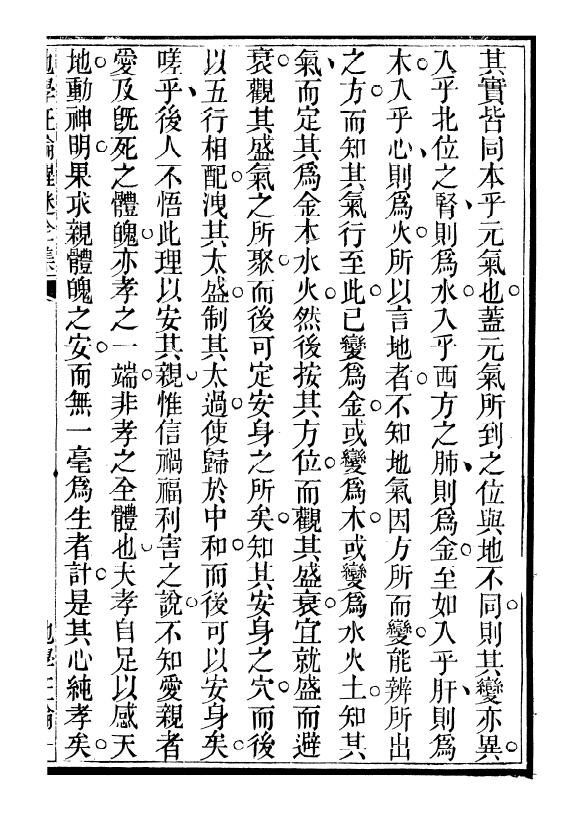 其實皆同本乎元氣也蓋元氣所到之位與地不同則其變亦異
入乎北位之腎則爲水入乎西方之肺則爲金至如入乎肝則爲
木入乎心則爲火所以言地者不知地氣因方所而變能辨所出
之方而知其氣行至此已變爲金或變爲木或變爲水火土知其
氣而定其爲金木水火然後按其方位而觀其盛衰宜就盛而避
衰觀其盛氣之所聚而後可定安身之所矣知其安身之穴而後
以五行相配洩其太盛制其太過使歸於中和而後可以安身矣
嗟乎後人不悟此理以安其親惟信禍福利害之說不知愛親者
愛及旣死之體魄亦孝之一端非孝之全體也大孝自足以感天
地動神明果求親體魄之安而無一毫爲生者計是其心純孝矣